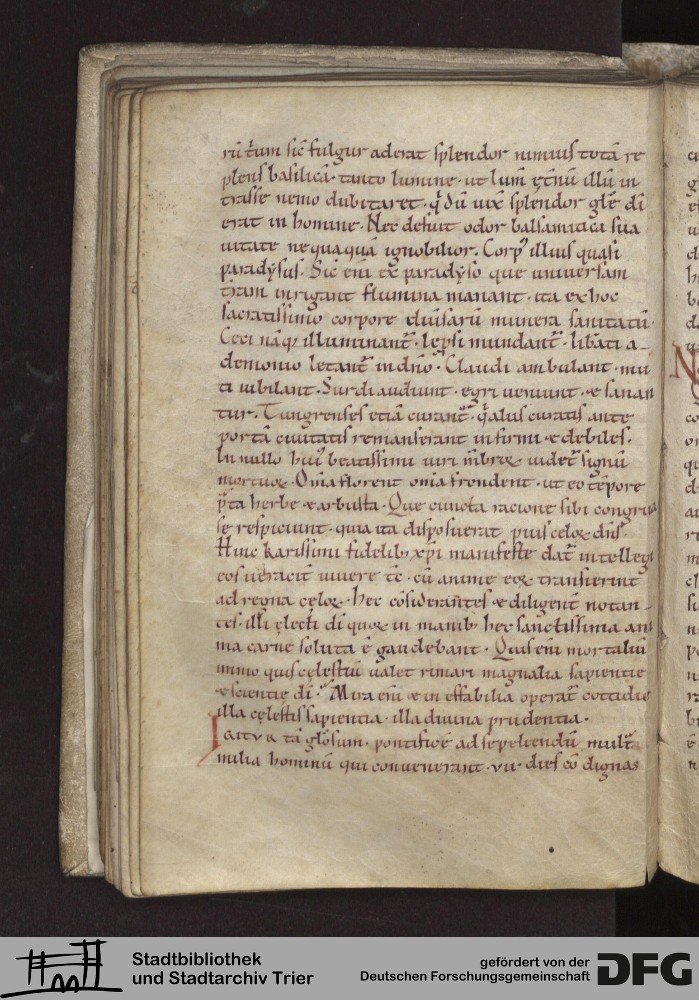 rū tm̄ sic̄ fulgur aderat splendor nimius totā re
plens basilicā· tanto lumine· ut lum̄ et̄nū illū in
trasse nemo dubitaret· qd̄ dū uix̄ splendor glē dī
erat in homine· Nec defuit odor balsamitica sua
uitate nequaquā ignobilior· Corpꝰ illius quasi
paradysus· Sic eni de paradyso que uniuersam
trām inrigant flumina manant· ita ex hoc
sacratissimo corpore diuersarū munera sanitatū·
Ceci nāq; illuminant̄· lepsi mundant̄· libati a-
demonio letant̄ in dnō· Claudi ambulant· mu
ti iubilant· Surdi audiunt· egri ueniunt· & sanan
tur· Tungrenses etiā curant̄· qi alus curatis ante
portā ciuitatis remanserant infirmi & debiles·
In nullo huiꝰ beatissimi uiri mb̄roꝝ uidet̄ signū
mortuoꝝ· Om̄ia florent om̄ia frondent· ut eo tēpore
p̄ta herbe & arbusta· Que cuncta racione sibi congrua
se respiciunt· quia ita disposuerat pius celoꝝ dn̄s·
Hinc karissimi fidelib; xp̄i manifeste dat̄ intellegi
eos ueracit̄ uiuere tc̄· cū anime eoꝝ transierint
ad regna cęloꝝ· hec cōsiderantes & diligent̄ notan-
tes· illi electi dī quoꝝ in manib; hec sanctissima ani
ma carne soluta ē gaudebant· Quis eni mortaliū
immo quis celestiū ualet rimari magnalia sapientie
& scientie dī? Mira eni & ineffabilia operat̄ cottidie
illa cęlestis sapientia· illa diuina prudentia·
Igitur tā glosum· pontificē ad sepeliendū mult̄a
milia hominū qui conuenerant· vii· dies cō dignas
Stadtbibliothek
und Stadtarchiv Trier
gefördert von der
Deutschen Forschungsgemeinschaft
DFG